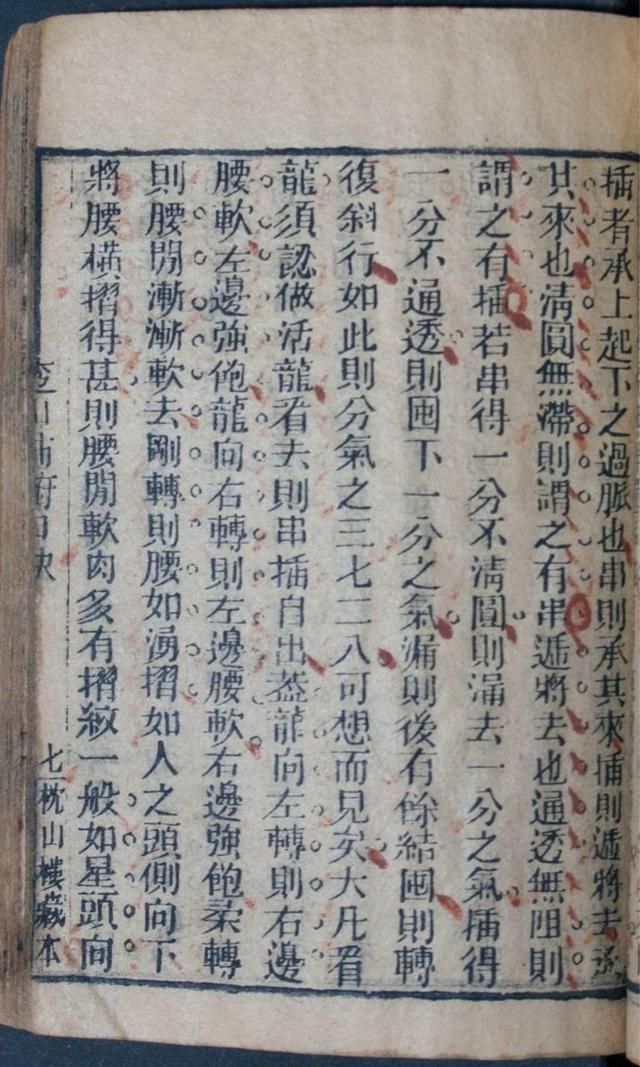 插者承上起下之過脈也串則承其來插則遞將去
其來也淸圓無滯則謂之有串遞將去也通透無阻則
謂之有插若串得一分不淸圓則漏去一分之氣插得
一分不通透則囤下一分之氣漏則後有餘結囤則轉
復斜行如此則分氣之三七二八可想而見矣大凡看
龍須認做活龍看去則串插自出葢龍向左轉則右邊
腰軟左邊強飽龍向右轉則左邊腰軟右邊強飽柔轉
則腰閒漸漸軟去剛轉則腰如湧摺如人之頭側向下
將腰橫摺得甚則腰閒軟肉多有摺紋一般如星頭向
口訣
七 枕山樓藏本